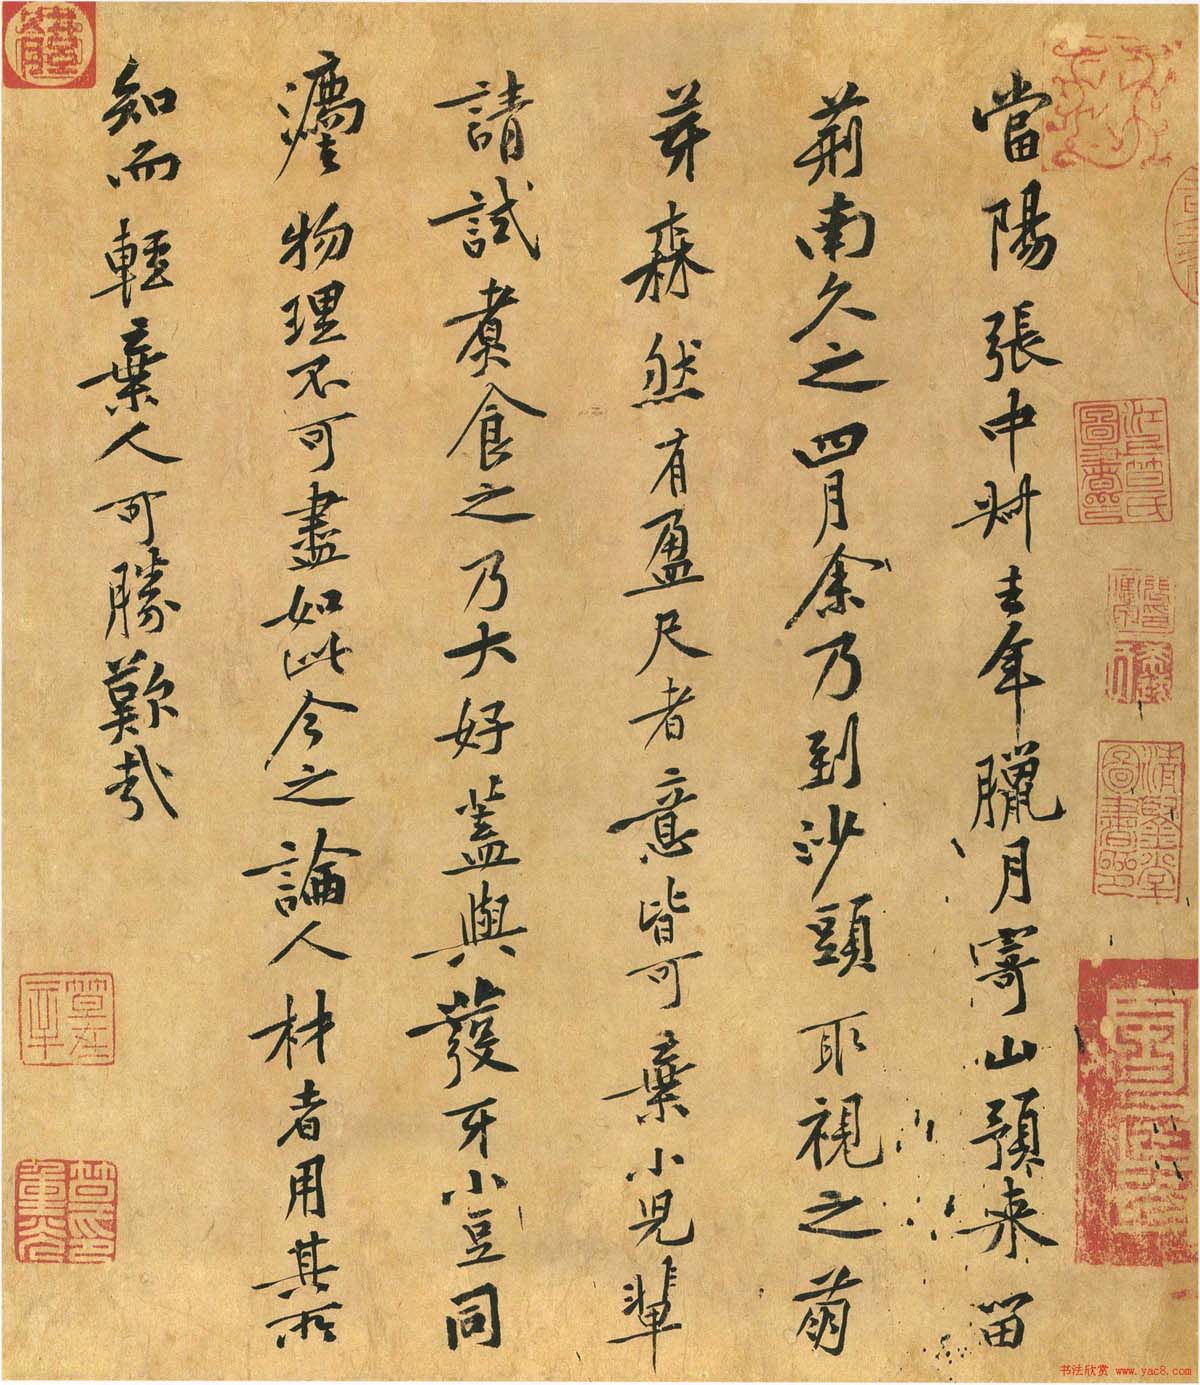 當陽張中叔去年臘月寄山預來留
荊南久之四月余乃到沙頭取視之萌
芽森然有盈尺者意皆可棄小兒輩
請試煮食之乃大好蓋與發牙小豆同
法物理不可盡如此今之論人材者用其所
知而輕棄人可勝歎哉
书法欣赏 www.yac8.com